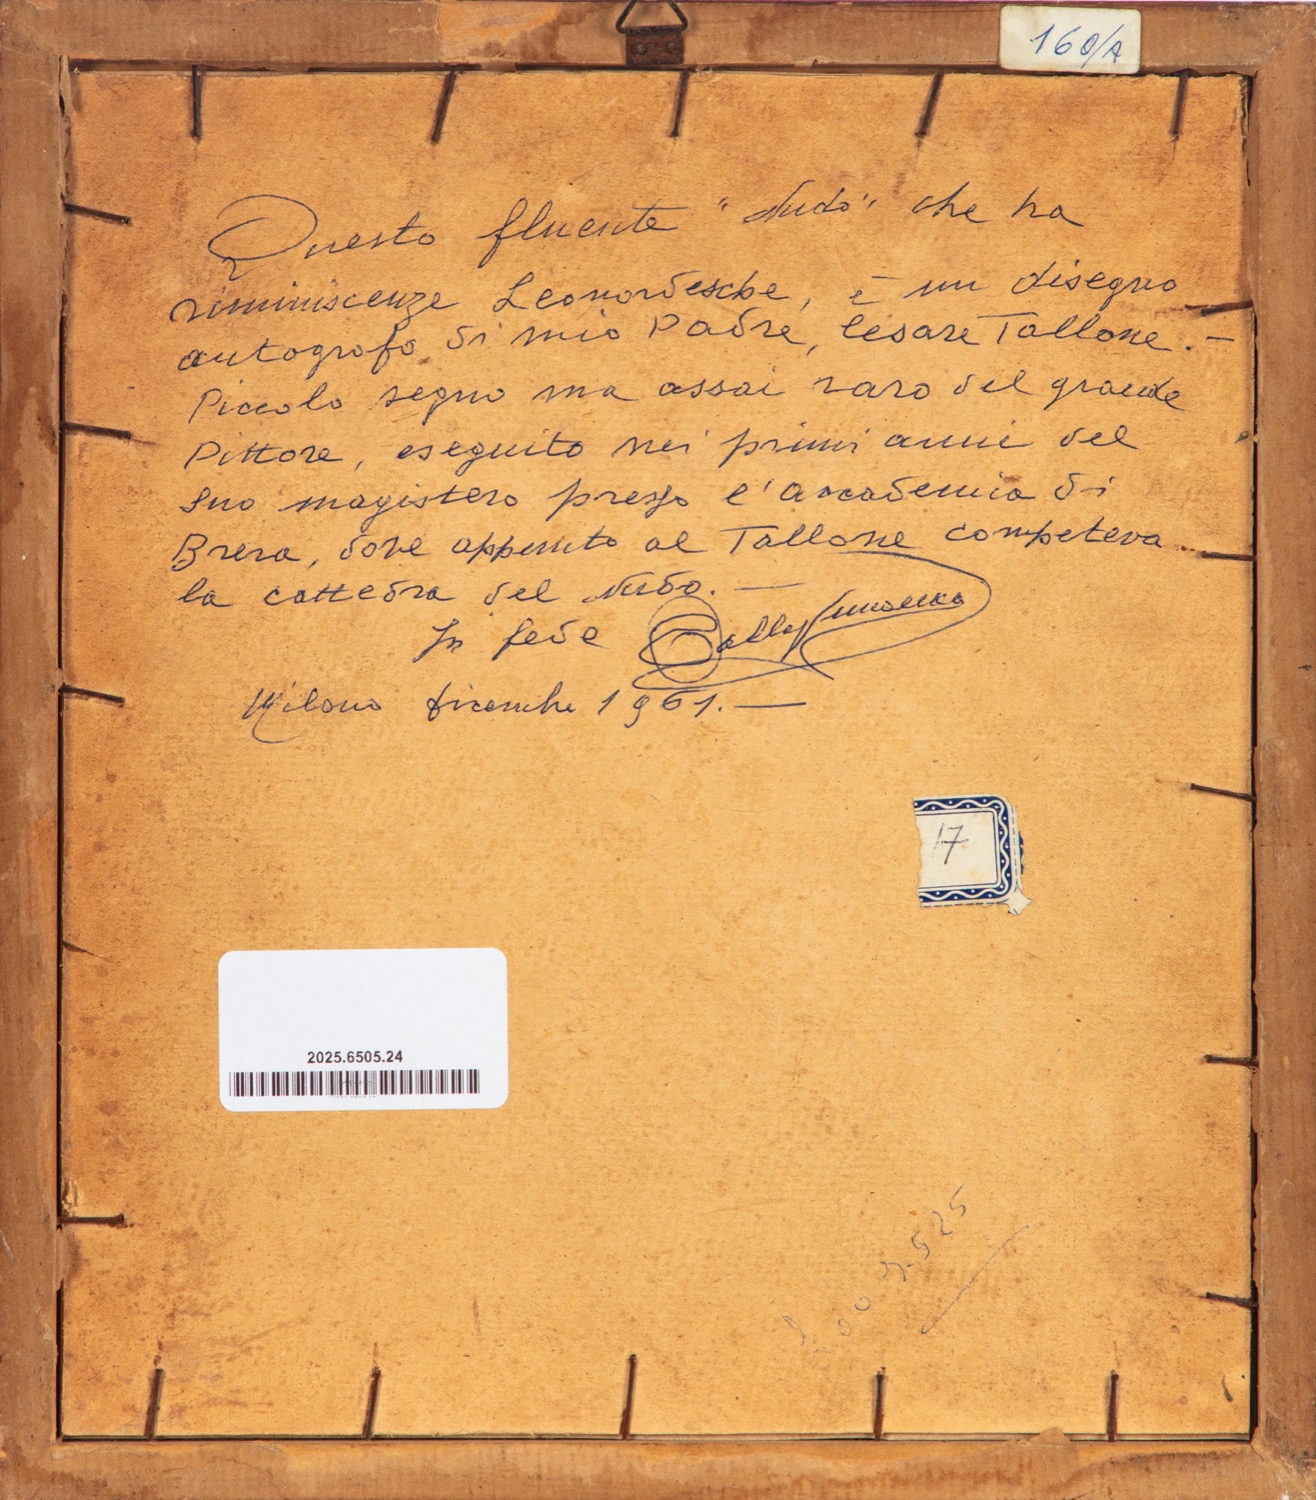 160/A
Questo fluente "Nudo" che ha
riminiscenze Leonardesche, è un disegno
autografo di mio Padre, Cesare Tallone. -
Piccolo segno ma assai raro del grande
Pittore, eseguito nei primi anni del
suo magistero presso l'accademia di
Brera, dove appunto al Tallone competeva
la cattedra del Nudo. -
In fede
Milano dicembre 1961. -
17
2025.6505.24